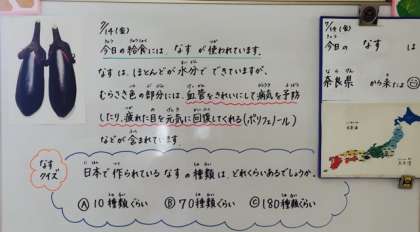 7/14(金)
今日の給食には、なすが使われています。
なすは、ほとんどが水分でできていますが、
むらさき色の部分には、血管をきれいにして病気を予防
したり、疲れた目を元気に回復してくれる(ポリフェノール)
などが含まれています
なす
クイズ
日本で作られているなすの種類は、どれくらいあるでしょうか。
Ⓐ10種類くらい Ⓑ70種類くらい Ⓒ180種類くらい
7/14(金)
今日の なす は
奈良県 から来たよ